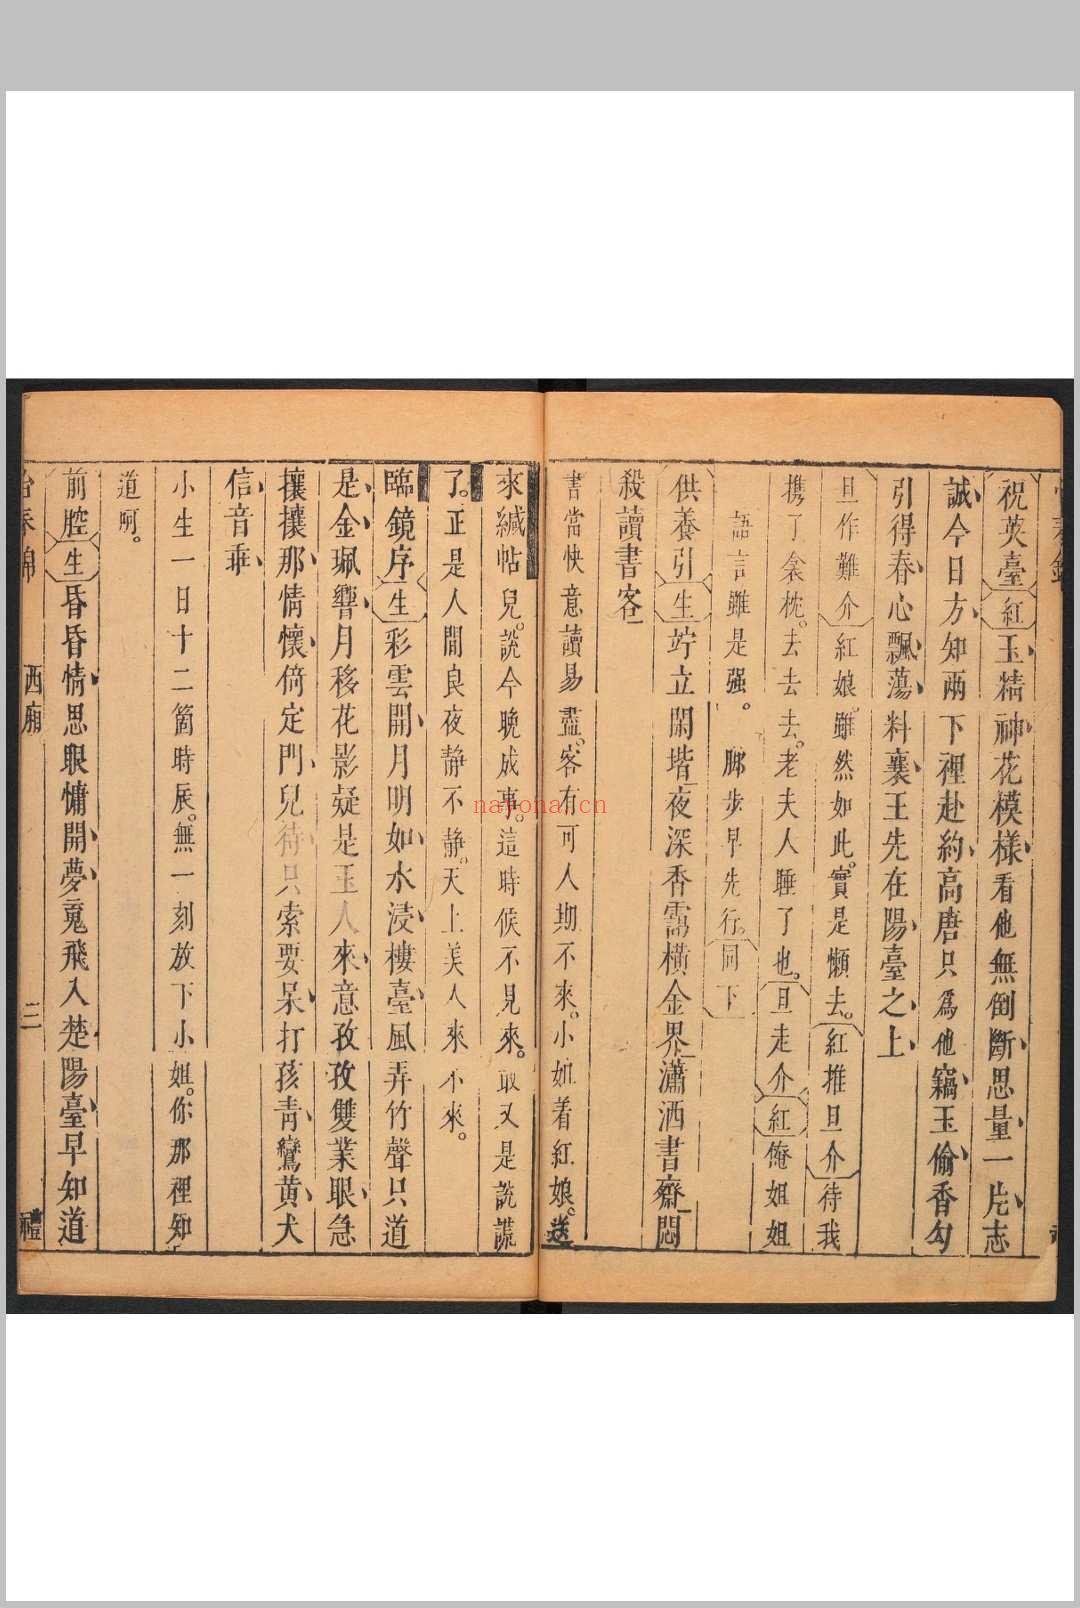 祝英臺紅玉精神花模樣看他無倒斷思量一片志
誠今日方知兩下裡赴約高唐只爲他竊玉偷香勾
引得春心飄蕩料襄王先在陽臺之上
旦作難介紅娘。雖然如此。實是懶去。紅推旦介待我
携了衾枕。去去去。老夫人睡了也。旦走介紅俺姐姐
語言雖是强。脚步早先行。同下
供養引生竚立閑堦夜深香靄橫金界瀟洒書齋悶
殺讀書客
書當快意讀易盡。客有可人期不來。小姐着紅娘。送
來緘帖兒。說今晚成事。這時候不見來。敢又是說謊
了。正是人間良夜靜不靜。天上美人來不來。
臨鏡序生彩雲開月明如水浸樓臺風弄竹聲只道
是金珮響月移花影疑是玉人來意孜孜雙業眼急
攘攘那情懷倚定門兒待只索要呆打孩青鸞黃犬
信音乖
小生一日十二箇時辰。無一刻放下小姐。你那裡知
道呵。
前腔生昏昏情思眼慵開夢䰟飛入楚陽臺早知道
西廂
三
禮
narona.cn